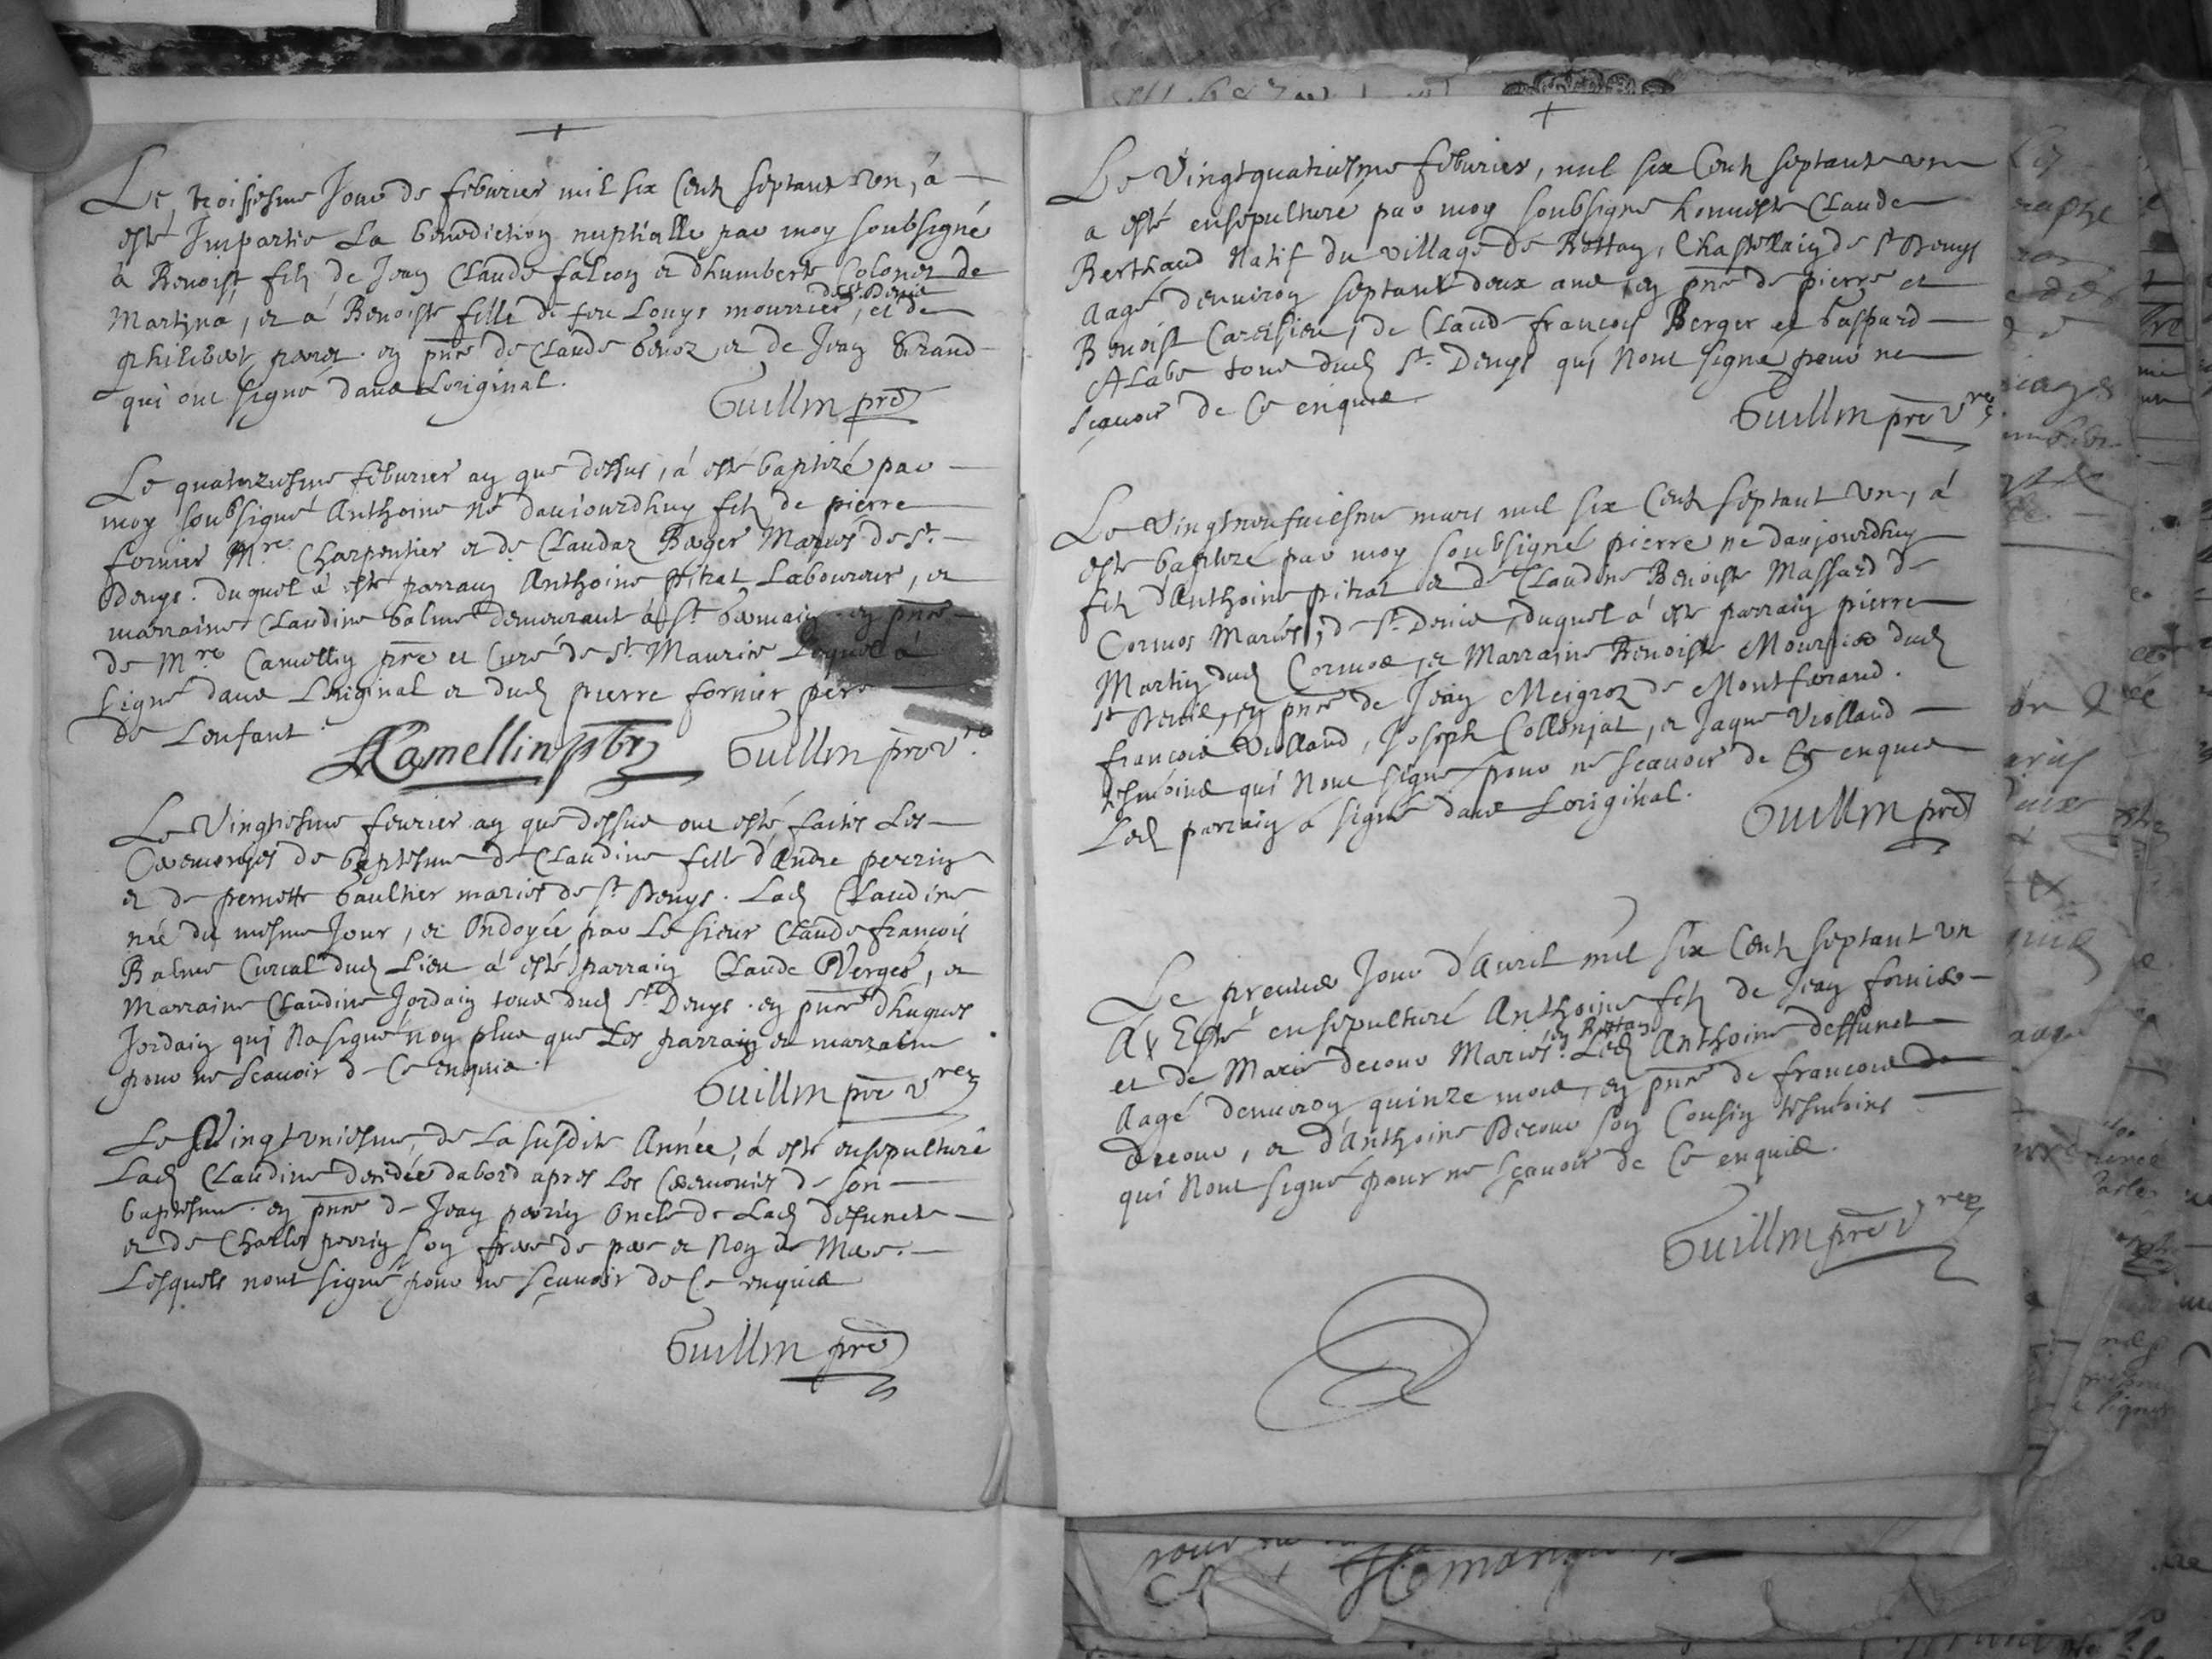 Le troisiesme Jour de feburier mil six Cent septant Un, à
esté Impartie La benediction nuptialle par moy soubsigné
à Benoist fils de Jean Claude falcon et dhumberte Colonez de
Martina, et à Benoiste fille de feu Louys mourrier, et de
de st Denis
philibert en pnce de Claude et de Jean
qui ont signé dans Loriginal.
Guillin pre
Le quatorziesme feburier an que dessus, à esté baptizé par
moy soubsigné Anthoine né daujourdhuy fils de pierre
fornier Mre Charpentier et de Claudaz Berger Mariés de St
Denys. duquel à esté parrain Anthoine pitrat Laboureur, et
marraine Claudine balme demeurant à St Germain en pnce
de Mre Camellin pre et Curé de St Maurice Lequel à
signé dans Loriginal et dud pierre fornier pere
de Lenfant.
Camellin pbr Guillin pre vre
Le Vingtiesme feurier an que dessus ont esté faites Les
Ceremonyes de baptesme de Claudine fille dAndre perrin
et de pernette Gaultier mariés de st Denys. Lad Claudine
née du mesme Jour, et Ondoyée par Le sieur Claude françois
Balme Curial dud Lieu à esté parrain Claude Verger, et
Marraine Claudine Jordain tous dud St Denys. en pnce dhugues
Jordain qui Na signé non plus que Les parrain et marraine
pour ne scauoir de Ce enquis.
Guillin pre vre
Le Vingtuniesme, de La susdite Année, à esté ensepulturé
Lad Claudine decedée dabord apres Les Ceremonies de son
baptesme. en pnce de Jean perrin Oncle de Lad deffuncte
et de Charles perrin son frere de pere et Non de Mere.
Lesquels nont signé pour ne scauoir de Ce enquis
Guillin pre
Le Vingtquatriesme feburier, mil six Cent septante un
a esté ensepulturé par moy soubsigné honneste Claude
Berthaud Natif du village de Rottan, Chastellain de st Denys
Aagé denuiron septante deux ans, en pnce de pierre et
Benoist de Claude françois Berger et Gaspard
ALabe tous dud St. Denys qui Nont signé pour ne
scauoir de Ce enquis.
Guillin pre vre
Le Vingtneufuiesme mars mil six Cent septant Un, à
esté baptizé par moy soubsigné pierre né daujourdhuy
fils dAnthoine pitrat et de Claudine Benoiste Massard de
Cormos Mariés, de St Denis, duquel à esté parrain pierre
Martin dud Cormos, et Marraine Benoiste Mourrier dud
st Denis, en pnce de Jean Meigroz de Montferrand.
françois Violland, Joseph Collonjat, et Jaques Violland
tesmoins qui Nont signé pour ne scauoir de Ce enquis
Led parrain à signé dans Loriginal.
Guillin pre
Le premier Jour d'Avril mil six Cent septant un
A Esté ensepulturé Anthoine fils de Jean fornier
et de Marie decour Mariés. Led Anthoine deffunct
en Rottan
Aagé denuiron quinze mois, en pnce de françois
decour, et d'Anthoine Decour son Cousin tesmoins
qui Nont signé pour ne scauoir de Ce enquis.
Guillin pre vre